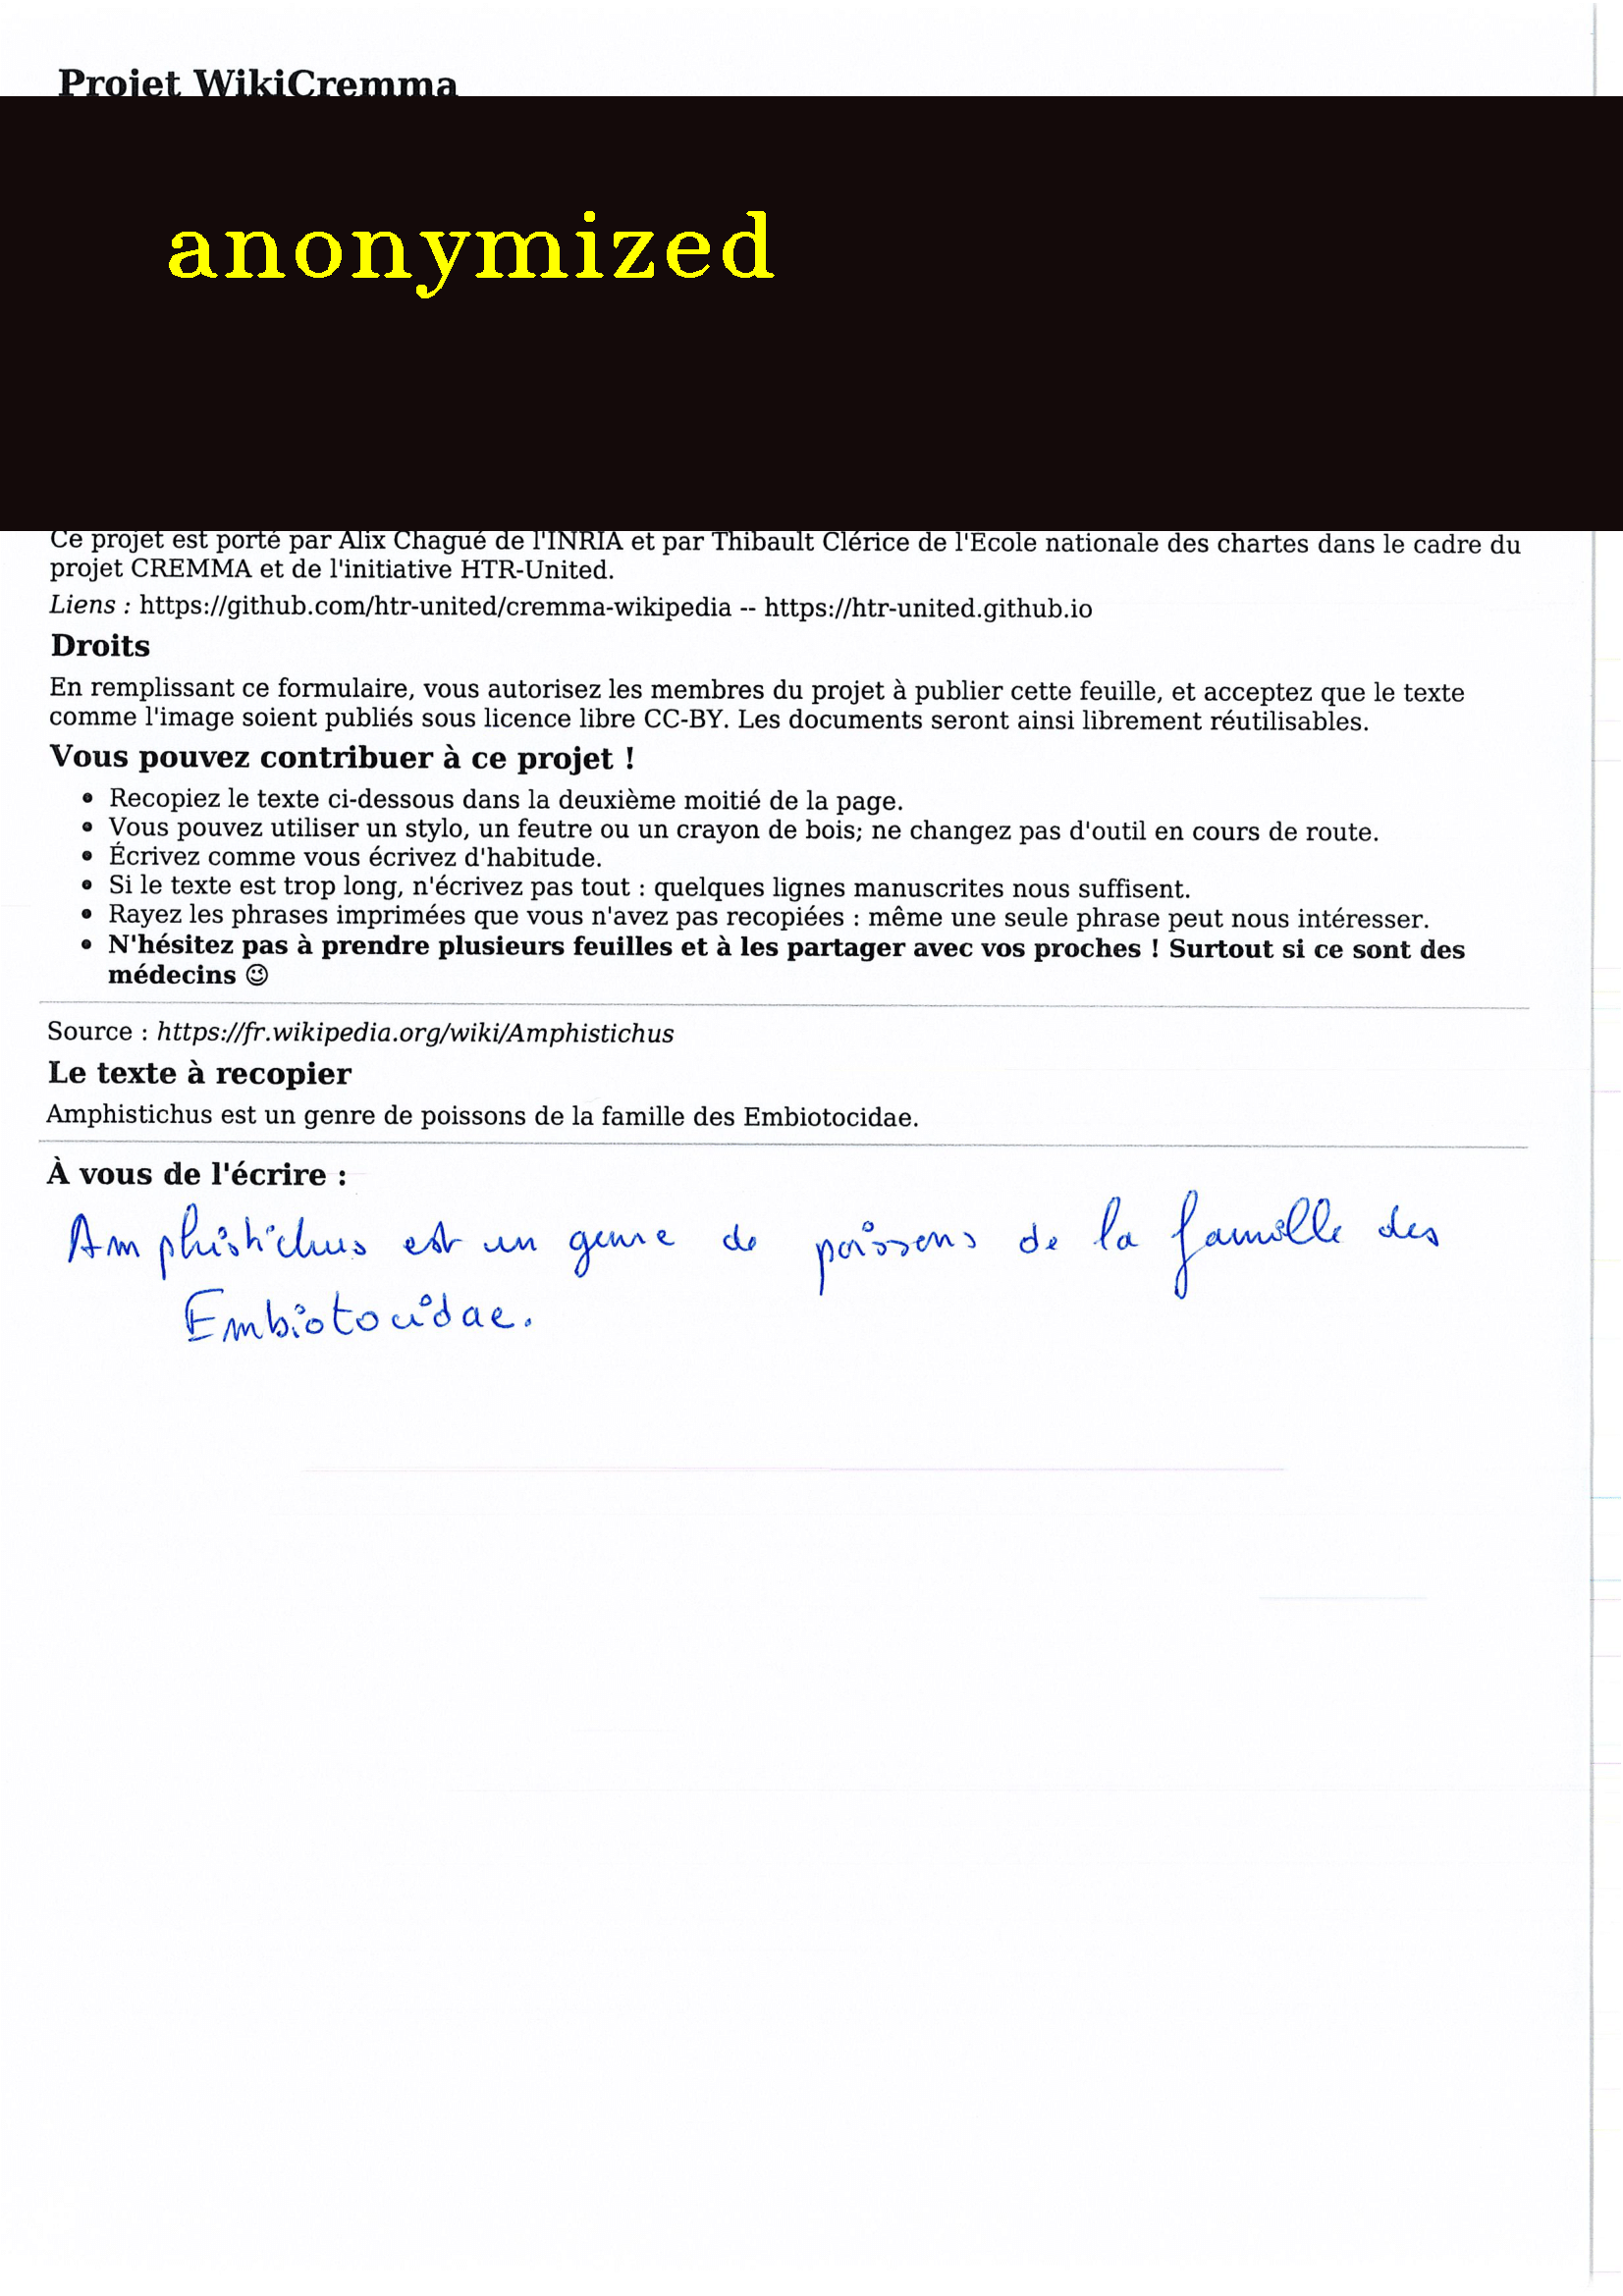 Projet WikiCremma
anonymized
Ce projet est porté par Alix Chagué de l'INRIA et par Thibault Clérice de l'École nationale des chartes dans le cadre du
projet CREMMA et de l'initiative HTR-United.
Liens : https://github.com/htr-united/cremma-wikipedia -- https://htr-united.github.io
Droits
En remplissant ce formulaire, vous autorisez les membres du projet à publier cette feuille, et acceptez que le texte
comme l'image soient publiés sous licence libre CC-BY. Les documents seront ainsi librement réutilisables.
Vous pouvez contribuer à ce projet !
• Recopiez le texte ci-dessous dans la deuxième moitié de la page.
• Vous pouvez utiliser un stylo, un feutre ou un crayon de bois; ne changez pas d'outil en cours de route.
• Écrivez comme vous écrivez d'habitude.
• Si le texte est trop long, n'écrivez pas tout : quelques lignes manuscrites nous suffisent.
• Rayez les phrases imprimées que vous n'avez pas recopiées : même une seule phrase peut nous intéresser.
• N'hésitez pas à prendre plusieurs feuilles et à les partager avec vos proches ! Surtout si ce sont des
médecins 😉
Source : https://fr.wikipedia.org/wiki/Amphistichus
Le texte à recopier
Amphistichus est un genre de poissons de la famille des Embiotocidae.
À vous de l'écrire :
Amphistichus est un genre de poissons de la famille des
Embiotocidae.